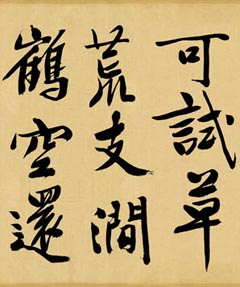 可試草
荒支澗
鶴空還